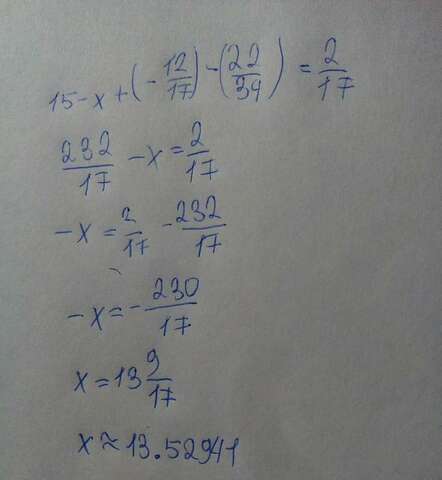 15-x+(-12/17)-(22/34)=2/17
232/17-x=2/17
-x=2/17-232/17
-x=-230/17
x=13 9/17
x≈13.52941